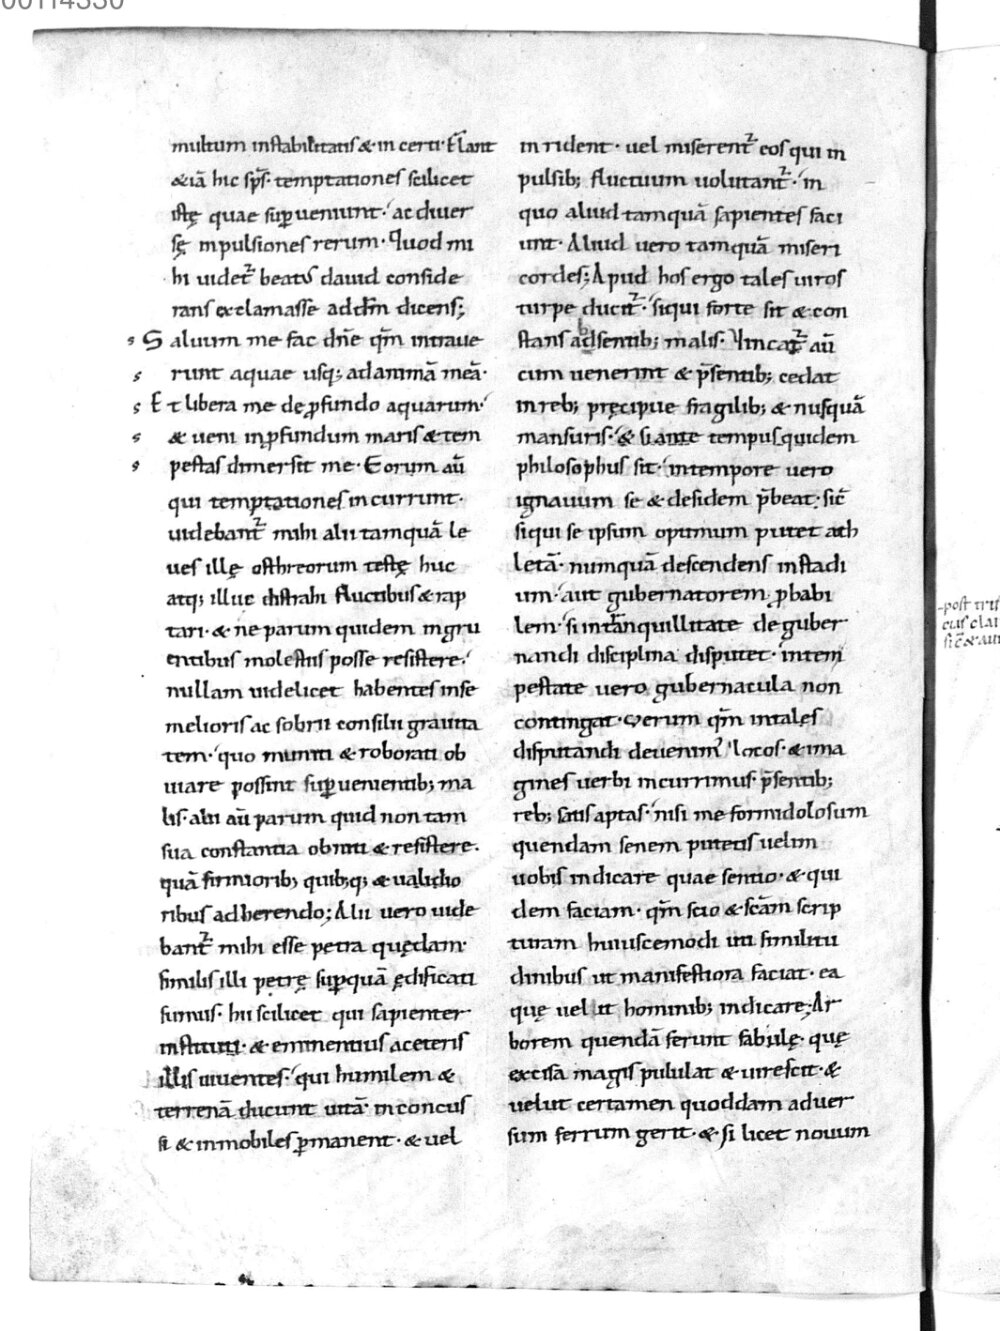 00114330
multum instabilitatis & incerti· Flant
&iā hic sp̄s· temptationes scilicet
istę quae sup̱ueniunt·' ac diuer
sę inpulsiones rerum· Quod mi
hi uidet᷑ beatus dauid conside
rans exclamasse ad dn̄m dicens;
s Saluum me fac dn̄e qm̄ intraue
s runt aquae usq; ad animā meā·
s Et libera me de ꝓfundo aquarum·'
s & ueni in ꝓfundum maris & tem
s pestas dimersit me· Eorum aū
qui temptationes incurrunt·
uidebant᷑ mihi alii tamquā le
ues illę osthreorum testę huc
atq; illuc distrahi fluctibus & rap
tari· & ne parum quidem ingru
entibus molestiis posse resistere·'
nullam uidelicet habentes in se
melioris ac sobrii consilii grauita
tem·' quo muniti & roborati ob
uiare possint sup̱uenientib; ma
lis· alii aū parum quid non tam
sua constantia obniti & resistere·
quā firmiorib; quibq; & ualidio
ribus adherendo; Alii uero uide
bant᷑ mihi esse petra quędam·
similis illi petrę sup̱ quā ędificati
sumus· hii scilicet qui sapienter
instituti· & eminentius a ceteris
illis uiuentes·' qui humilem &
terrenā ducunt uitā inconcus
si & inmobiles ꝑmanent· & uel
inrident· uel miserent᷑ eos qui in
pulsib; fluctuum uolutant᷑·' in
quo aliud tamquā sapientes faci
unt· Aliud uero tamquā miseri
cordes; Apud hos ergo tales uiros
turpe ducit᷑·' siqui forte sit & con
stans absentib; malis· Uincat᷑ aū
cum uenerint & p̄sentib; cedat
in reb; pręcipue fragilib; & nusquā
mansuris·' & si ante tempus quidem
philosophus sit·' in tempore uero
ignauum se & desidem p̄beat· sic̄
siqui se ipsum optimum putet ath
letā· numquā descendens in stadi
um·' aut gubernatorem ꝓbabi
lem·' si in trāquillitate de guber
nandi disciplina disputet·' in tem
pestate uero gubernacula non
contingat· Verum qm̄ in tales
disputandi deuenim᷒ locos· & ima
gines uerbi incurrimus· p̄sentib;
reb; satis aptas·' nisi me formidolosum
quendam senem putetis uelim
uobis indicare quae sentio· & qui
dem faciam· qm̄ scio & sc̄am scrip
turam huiuscemodi uti similitu
dinibus ut manifestiora faciat· ea
quę uelit hominib; indicare; Ar
borem quendā ferunt fabulę· quę
excisa magis pululat & uirescit· &
uelut certamen quoddam aduer
sum ferrum gerit· & si licet nouum